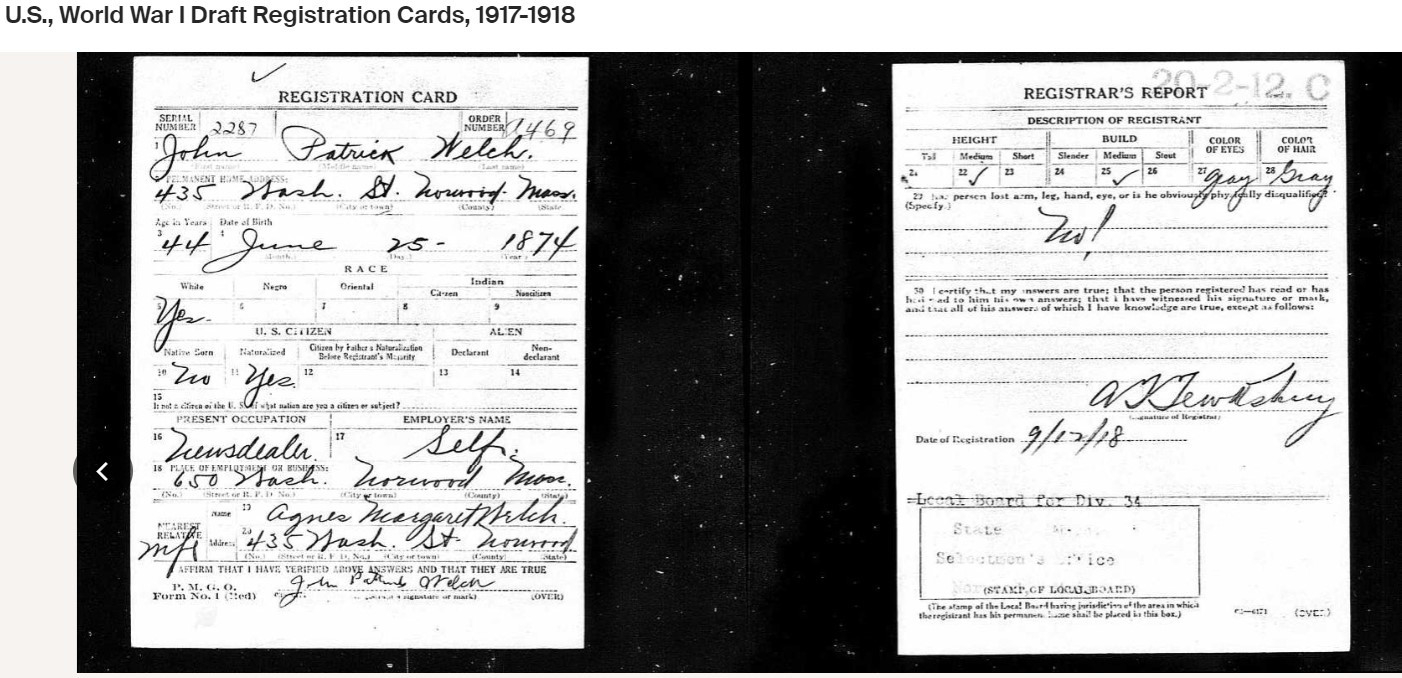 U.S., World War I Draft Registration Cards, 1917-1918
REGISTRATION CARD
SERIAL NUMBER 2287
ORDER NUMBER A469
1 John Patrick Welch.
(First name) (Middle name) (Last name)
2 PERMANENT HOME ADDRESS:
435 Wash. St. Norwood. Mass.
(No.) (Street or R. F. D. No.) (City or town) (County) (State)
Age in Years Date of Birth
3 44 4 June 25- 1874
(Month.) (Day.) (Year.)
RACE
White Negro Oriental Indian
Citizen Noncitizen
5 Yes. 6 7 8 9
U. S. CITIZEN ALIEN
Native Born Naturalized Citizen by Father's Naturalization Before Registrant's Majority Declarant Non-declarant
10 No 11 Yes. 12 13 14
15
If not a citizen of the U. S., of what nation are you a citizen or subject?
PRESENT OCCUPATION EMPLOYER'S NAME
16 Newsdealer. 17 Self.
18 PLACE OF EMPLOYMENT OR BUSINESS:
650 Wash. Norwood Mass.
(No.) (Street or R. F. D. No.) (City or town) (County) (State)
NEAREST RELATIVE
Name 19 Agnes Margaret Welch.
Address 20 435 Wash. St. Norwood
(No.) (Street or R. F. D. No.) (City or town) (County) (State)
I AFFIRM THAT I HAVE VERIFIED ABOVE ANSWERS AND THAT THEY ARE TRUE
P. M. G. O.
Form No. 1 (Red)
John Patrick Welch
(Registrant's signature or mark) (OVER)
20-2-12. C
REGISTRAR'S REPORT
DESCRIPTION OF REGISTRANT
HEIGHT BUILD COLOR OF EYES COLOR OF HAIR
Tall Medium Short Slender Medium Stout
21 22 ✓ 23 24 25 ✓ 26 27 Gray 28 Gray
29 Has person lost arm, leg, hand, eye, or is he obviously physically disqualified?
(Specify.)
No!
30 I certify that my answers are true; that the person registered has read or has
had read to him his own answers; that I have witnessed his signature or mark,
and that all of his answers of which I have knowledge are true, except as follows:
(Signature of Registrar)
Date of Registration 9/12/18
Local Board for Div. 34
State
Selectmen's Office
(STAMP OF LOCAL BOARD)
(The stamp of the Local Board having jurisdiction of the area in which
the registrant has his permanent home shall be placed in this box.)
(OVER)